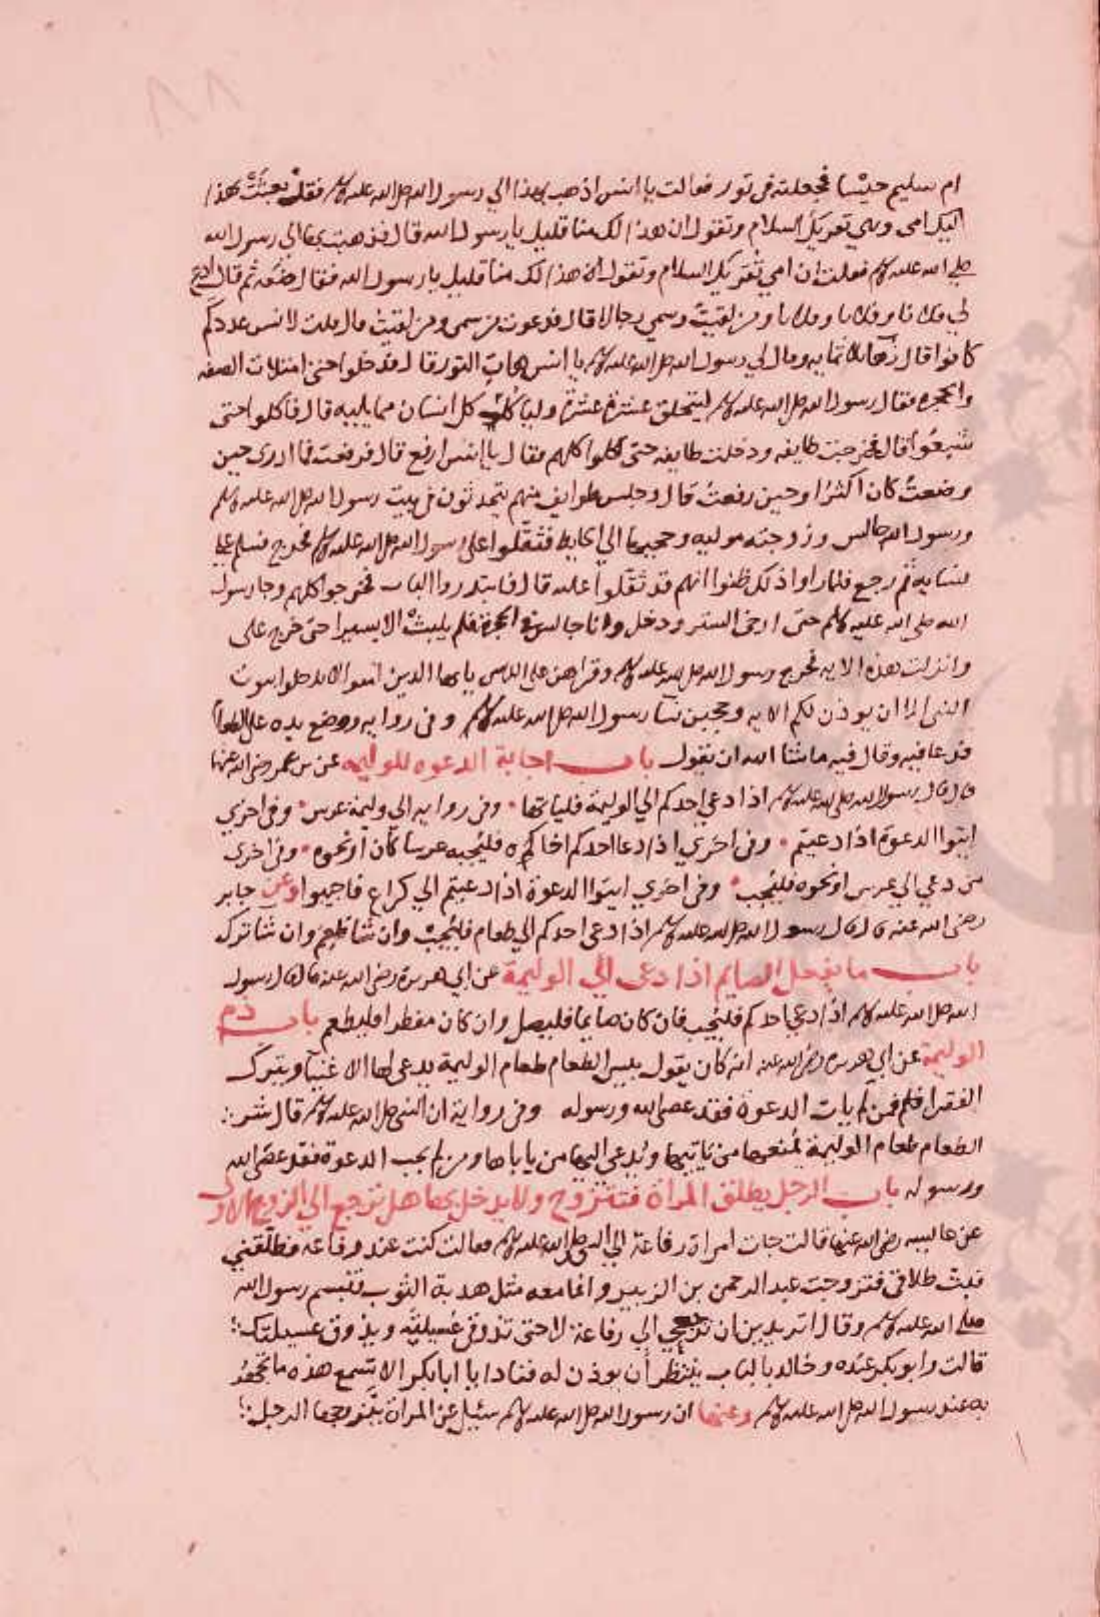 ٨٨
ام سليم حيسا فجعلته في تور فقالت يا انس اذهب بهذا الي رسول الله صلى الله عليه وسلم فقل بعثت بهذا
اليك امي وهي تقريك السلام وتقول ان هذا لك منا قليل يا رسول الله قال فذهبت بها الي رسول الله
صلى الله عليه وسلم فقلت ان امي تقريك السلام وتقول ان هذا لك منا قليل يا رسول الله فقال ضعه ثم قال اذهب فادع
لي فلانا وفلانا وفلانا ومن لقيت وسمي رجالا قال فدعوت من سمى ومن لقيت قال قلت لانس عددكم
كانوا قال زها ثلاثمايه وقال لي رسول الله صلى الله عليه وسلم يا انس هات التور قال فدخلوا حتى امتلات الصفه
والحجره فقال رسول الله صلى الله عليه وسلم ليتحلق عشرة عشرة ولياكل كل انسان مما يليه قال فاكلوا حتى
شبعوا قال فخرجت طايفه ودخلت طايفه حتى اكلوا كلهم فقال يا انس ارفع قال فرفعت فما ادري حين
وضعت كان اكثر او حين رفعت قال وجلس طوايف منهم يتحدثون في بيت رسول الله صلى الله عليه وسلم
ورسول الله جالس وزوجته موليه وجهها الي الحايط فثقلوا على رسول الله صلى الله عليه وسلم فخرج فسلم على
نسايه ثم رجع فلما راوا ذلك ظنوا انهم قد ثقلوا عليه قال فابتدروا الباب فخرجوا كلهم وجا رسول
الله صلى الله عليه وسلم حتى ارخى الستر ودخل وانا جالس في الحجرة فلم يلبث الا يسيرا حتى خرج على
وانزلت هذه الايه فخرج رسول الله صلى الله عليه وسلم وقراهن على الناس يا ايها الذين امنوا لا تدخلوا بيوت
النبي الا ان يوذن لكم الايه وحجبن نسا رسول الله صلى الله عليه وسلم وفي روايه ووضع يده على الطعام
فدعا فيه وقال فيه ما شا الله ان يقول باب اجابة الدعوه للوليمه عن بن عمر رضي الله عنهما
قال قال رسول الله صلى الله عليه وسلم اذا دعي احدكم الي الوليمة فلياتها وفي روايه الي وليمة عرس وفي اخري
ايتوا الدعوة اذا دعيتم وفي اخري اذا دعا احدكم اخاكم فليجبه عرسا كان او نحوه وفي اخري
من دعي الي عرس او نحوه فليجب وفي اخري ايتوا الدعوة اذا دعيتم الي كراع فاجيبوا وعن جابر
رضي الله عنه قال قال رسول الله صلى الله عليه وسلم اذا دعى احدكم الي طعام فليجب وان شا طعم وان شا ترك
باب ما يفعل الصايم اذا دعى الي الوليمة عن ابي هريرة رضي الله عنه قال قال رسول
الله صلى الله عليه وسلم اذا دعي احدكم فليجب فان كان صايما فليصل وان كان مفطرا فليطعم باب ذم
الوليمة عن ابي هريره رضي الله عنه انه كان يقول بيس الطعام طعام الوليمة يدعى لها الاغنيآ ويترك
الفقرا فلم فمن لم يات الدعوة فقد عصى الله ورسوله وفي رواية ان النبي صلى الله عليه وسلم قال شر
الطعام طعام الوليمة يمنعها من ياتيها ويدعى اليها من ياباها ومن لم يجب الدعوة فقد عصى الله
ورسوله باب الرجل يطلق المراة فتتزوج ولا يدخل بها هل ترجع الي الزوج الاول
عن عايشه رضي الله عنها قالت جات امراة رفاعة الي النبي صلى الله عليه وسلم فقالت كنت عند رفاعه فطلقني
فبت طلاقي فتزوجت عبد الرحمن بن الزبير وانما معه مثل هدبة الثوب فتبسم رسول الله
صلى الله عليه وسلم وقال اتريدين ان ترجعي الي رفاعة لا حتى تذوقي عسيلته ويذوق عسيلتك
قالت وابو بكر عنده وخالد بالباب ينتظر أن يوذن له فنادا يا ابا بكر الا تسمع هذه ما تجهر
به عند رسول الله صلى الله عليه وسلم وعنها ان رسول الله صلى الله عليه وسلم سئيل عن المراة يتزوجها الرجل